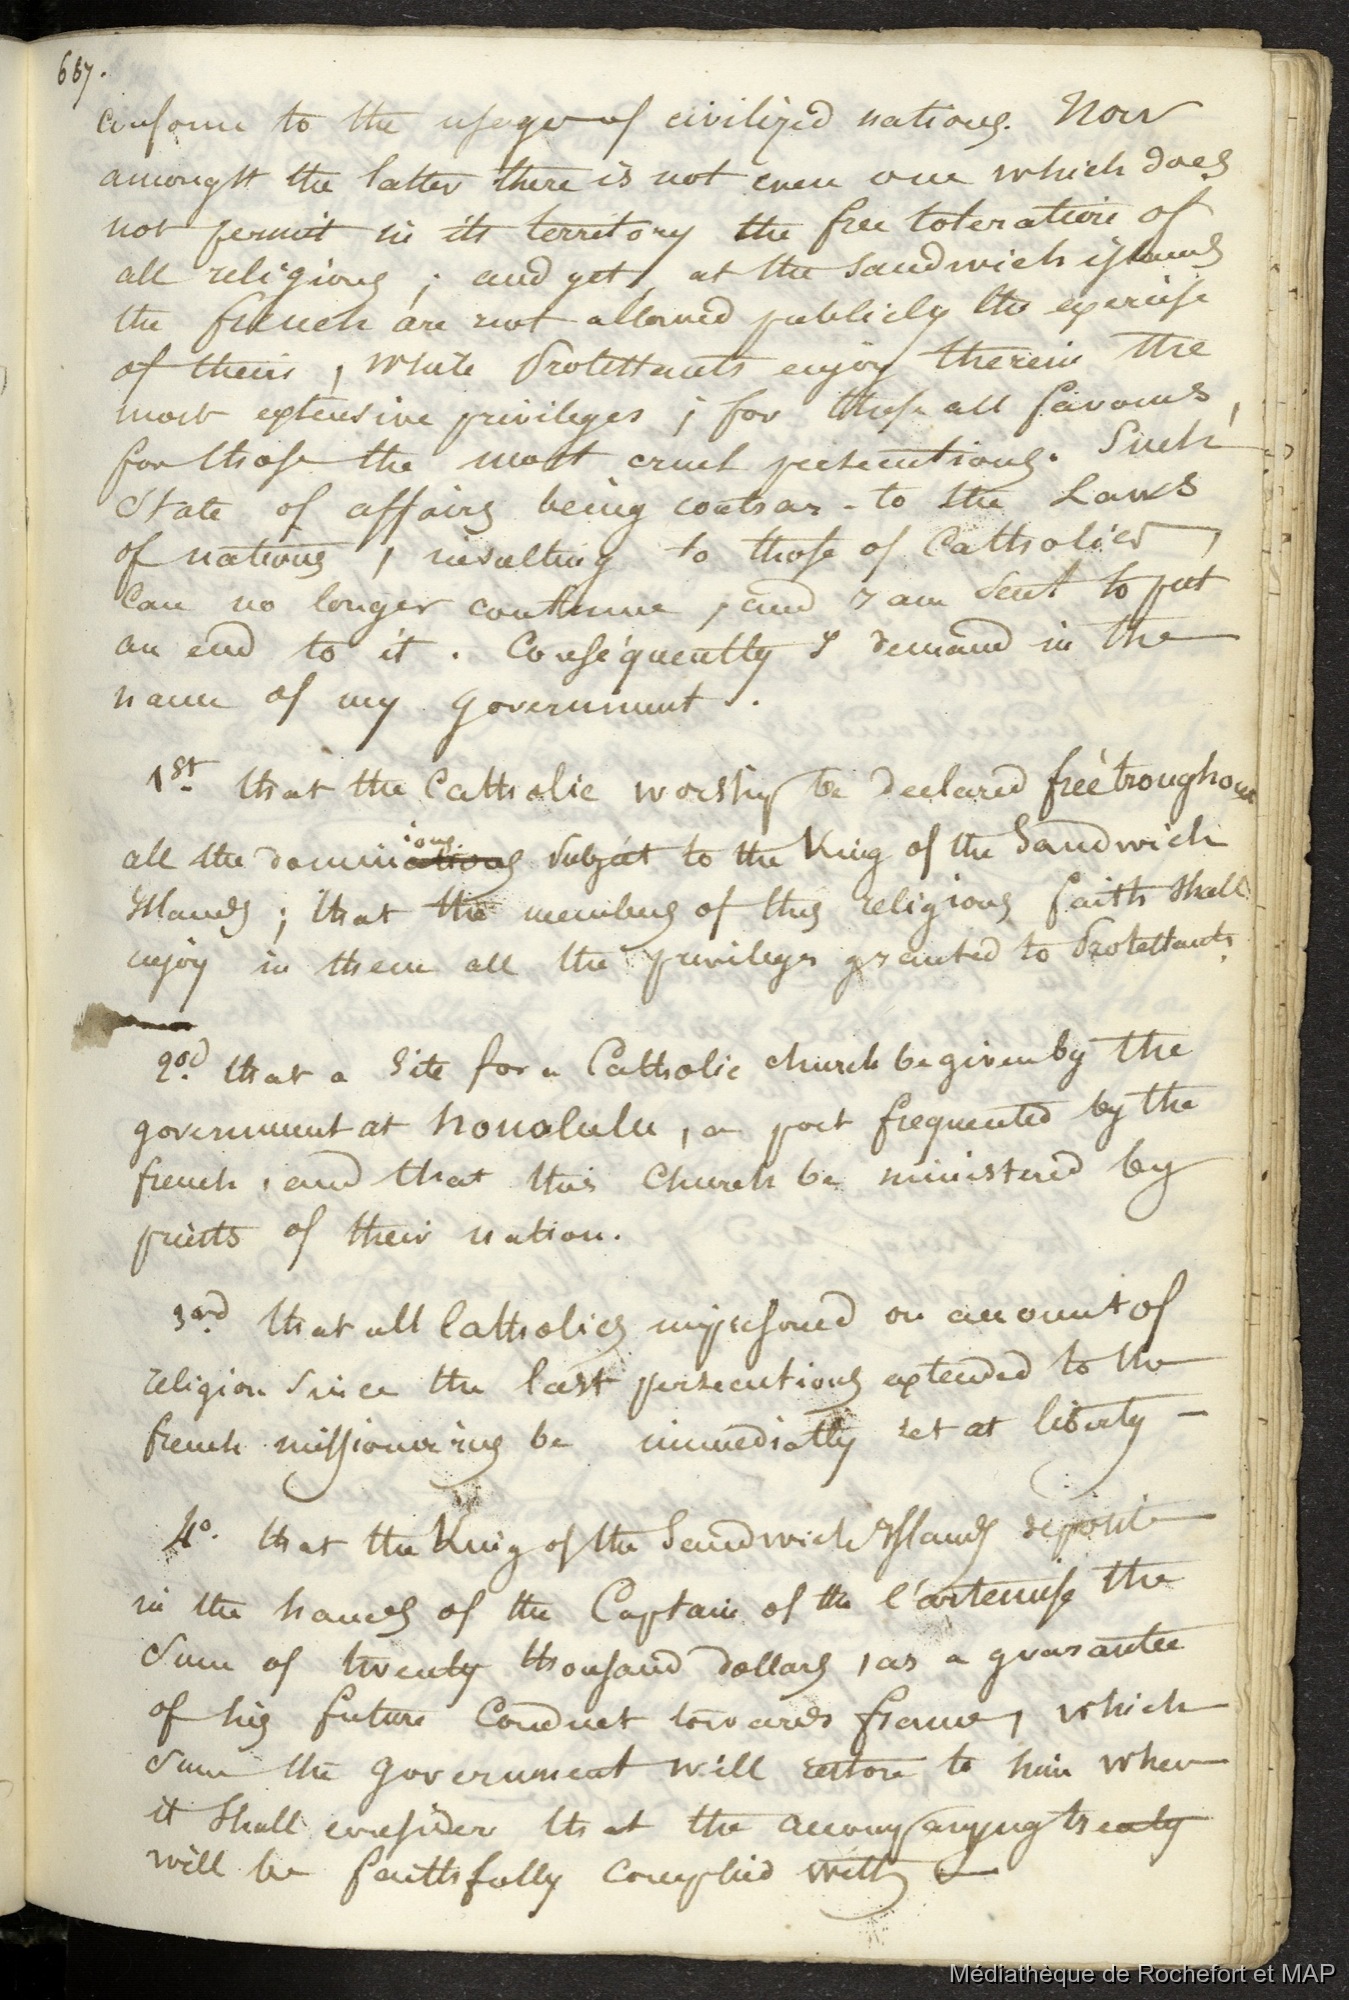 667.
conforme to the usage of civilized nations. Now
amongst the latter there is not even one which does
not permit in its territory the free toleration of
all religions ; and yet, at the Sandwich islands
the french are not allowed publicly the exercise
of theirs , while Protestants enjoy therein the
most extensive privileges ; for these all favours,
for those the most cruel persecutions. Such
State of affairs being contrar - to the Laws
of nations , insulting to those of Catholics ,
can no longer continue , and I am sent to put
an end to it . Conséquently I demand in the
name of my government .
1st. that the Catholic worship be declared free troughout
all the dominations ions subject to the King of the Sandwich
Islands ; that the members of this religious faith shall
enjoy in them all the privileges granted to Protestants.
2nd. that a Site for a Catholic church be given by the
government at honolulu , a port frequented by the
french , and that this Church be ministered by
priests of their nation.
3rd. that all Catholics imprisoned on account of
religion since the last persecutions extended to the
french missionaries be immediatly set at liberty -
4°. that the King of the Sandwich Islands deposit
in the hands of the Captain of the l'artemise the
Sum of twenty thousand dollars , as a guarantee
of his future Conduct towards france , which
Sum the government will restore to him when
it shall consider that the accompanying treaty
will be faithfully complied with -
Médiathèque de Rochefort et MAP